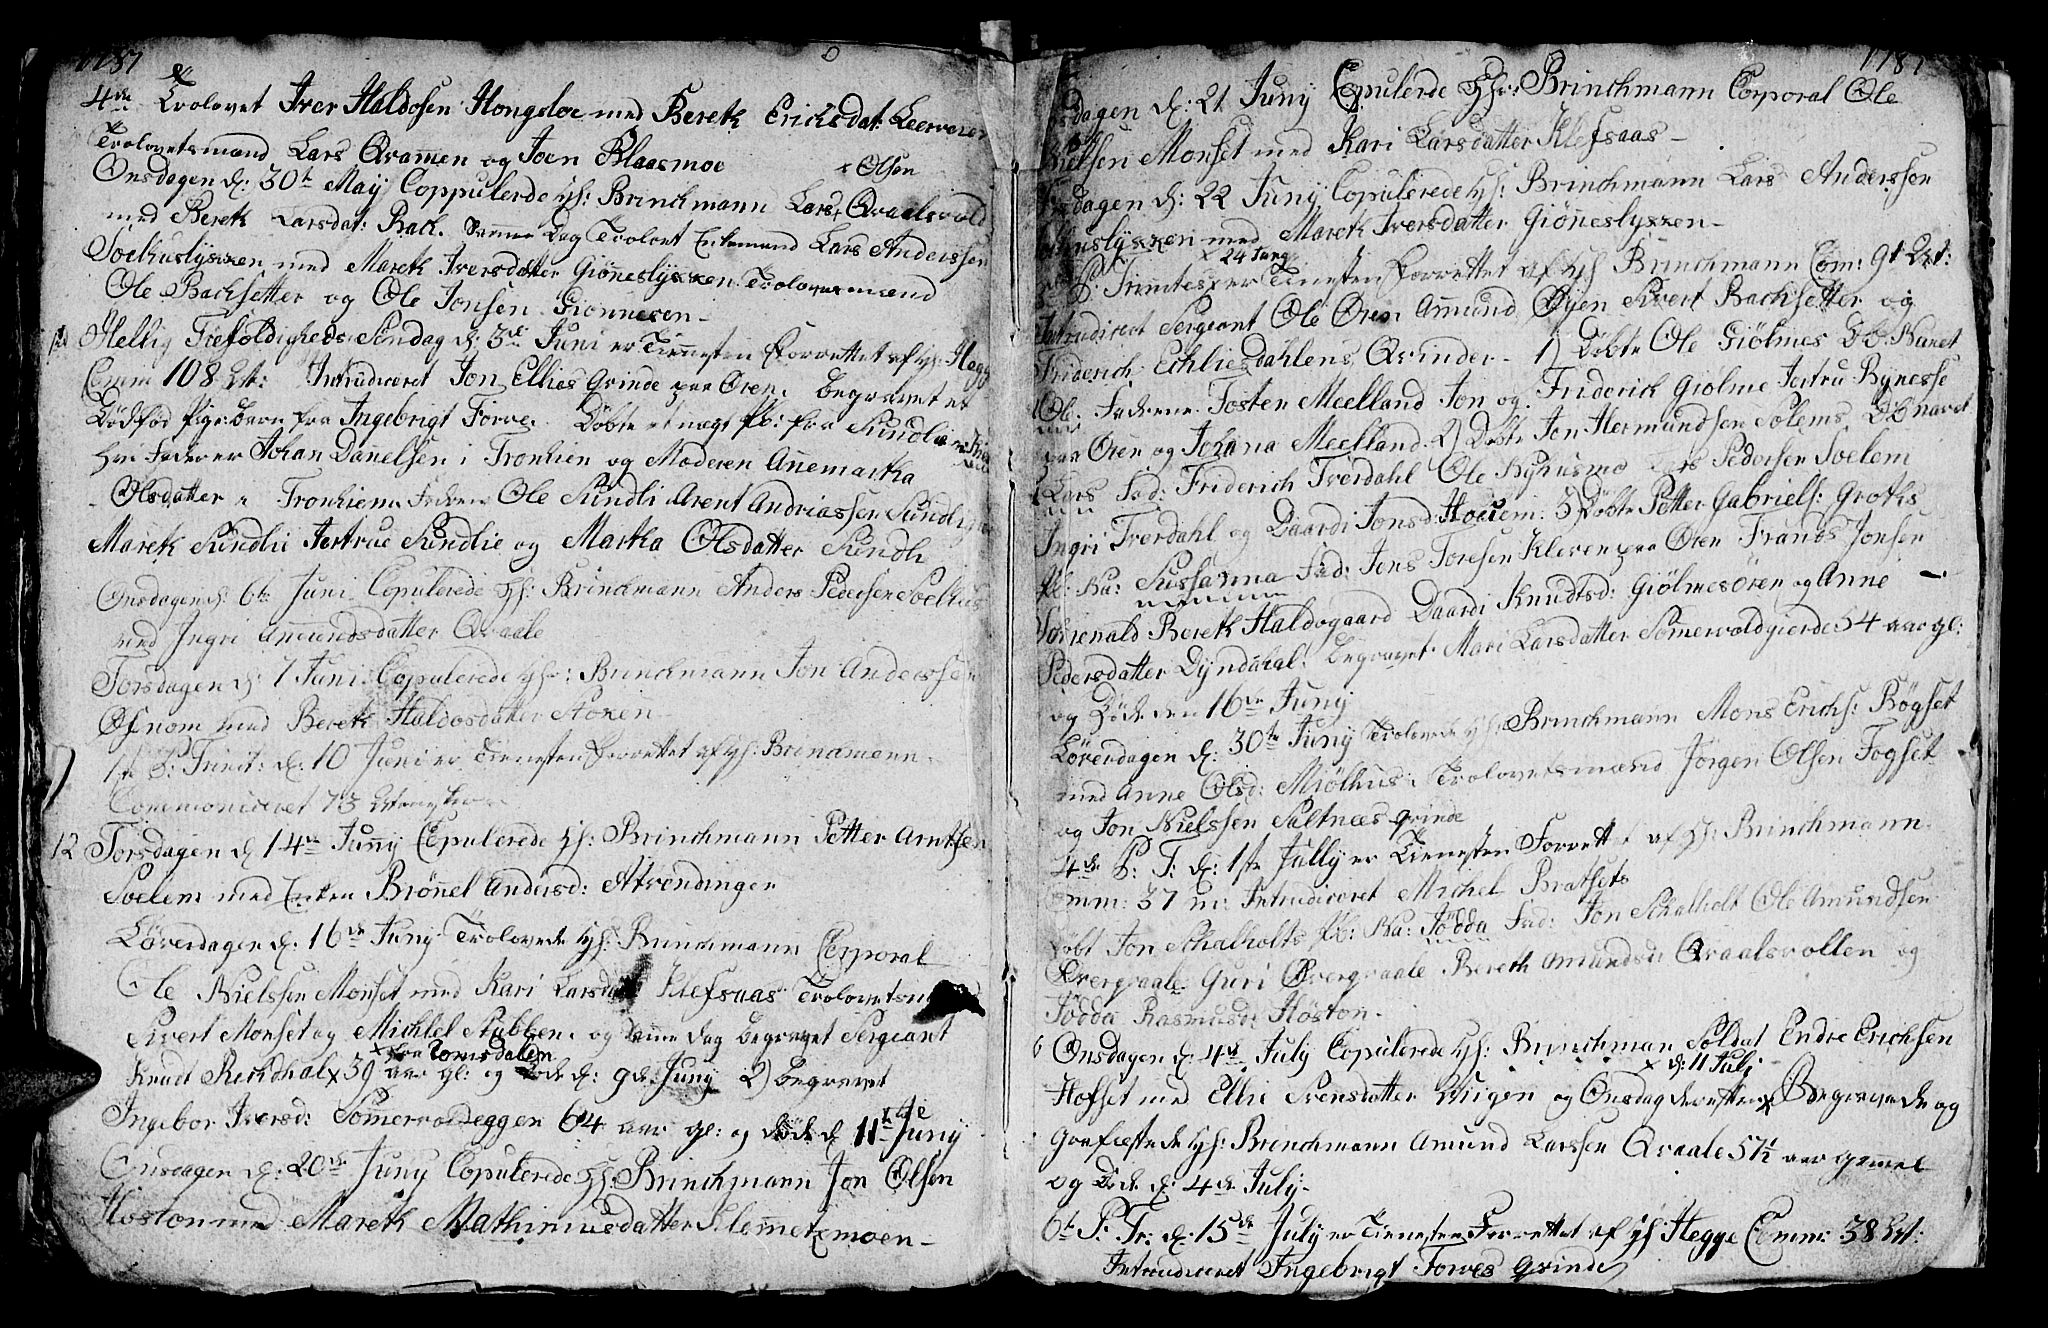 1787
4de Trolovet Iver Haldosen Hongsloe med Bereth Ericksdat: Leervever
Trolovetsmænd Lars Qvammen og Joen Blaasmoe x Olsen
Onsdagen d: 30te May Coppulerde hr: Brinchmann Lars x Qvaalsvold
med Bereth Larsdat: Bach. Samme Dag Trolovet Enkemand Lars Anderssen
Soelhuslykken med Mareth Iversdatter Giönneslykken Trolovesmænd
Ole Bachsetter og Ole Jonsen Gionnesen
Hellig Trefoldigheds Söndag d: 3de Juni er Tienesten forrettet af hr: Hegge
Comm 108 St: Introduceret Jon Ellies Qvinde paa Ören. begravet et
Dödfød Pige barn fra Ingebrigt Forve. Döbte et uægt Pb: fra Sundlie
hvis Fader er Johan Danelsen i Tronhiem og Moderen Annemartha
Olsdatter i Tronhiem Faderne Ole Sundli Arent Andriassen Sundlie
Mareth Sundlie Jertrue Sundlie og Martha Olsdatter Sundli
Onsdagen d: 6te Juni Copulerede hr: Brinchmann Anders Pedersen Soelhus
med Ingri Amundsdatter Qvaale
Torsdagen d: 7 Juni Copulerede hr: Brinchmann Jon Anderssen
Ofenom med Bereth Haldosdatter Stoxen
1ste S: Trinit: d: 10 Juni er Tienesten forrettet af hr: Brinchmann
Communiceret 73
12 Torsdagen d 14de Juny Copulerede hr: Brinchmann Petter Arntsen
Soelem med Enken Brönnel Andersd: Strendingen
Löverdagen d: 16de Juny Trolovede hr: Brinchmann Corporal
Ole Nielssen Monset med Kari Larsdat Klefsaas Trolovetsm
Sivert Monset og Michlel Stubben. og Samme Dag begravet Sergeant
x fra Romsdalen
Knudt Reichdhal x 39 aar gl: og Döde d: 9de Juny 2) begravet
Ingebor Iversd: Somervoldeggen 64 aar gl: og döde d 11te Juny
Onsdagen d: 20de Juny Copulerede hr: Brinchmann Jon Olsen
Höston med Mareth Mathimusdatter Klemmetzmoen

1787
Torsdagen d: 21 Juny Copulerde hr: Brinchmann Corporal Ole
Nielsen Monset med Kari Larsdatter Klefsaas
Fredagen d: 22 Juny Copulerede hr: Brinchmann Lars Anderssen
Soelhuslykken med Mareth Iversdatter Giönneslykken
x 24 Juny
S: Trinitesx er Tienesten forrettet af hr Brinchmann Com: 91 St:
Introduceret Sergeant Ole Ören Ammund Öyen Sivert Bachsetter og
Friderich Echliesdahlens Qvinder 1) Döbte Ole Giölmes Db. Navet
Ole. Faderne Tosten Meelland Jon og Friderich Giölme Jertru Bynesse
paa Ören og Johana Meelland. 2) Döbte Jon Hermundsen Solems Db navet
Lars Fad: Friderich Trerdahl Ole Byhusmo Lars Pedersen Soelem
Ingri Trerdahl og Daardi Jonsd: Hoeiem: 3) Döbte Petter Gabriels: Groths
Pb: Na: Sussanna Fad: Jons Toresen Kleven paa Ören Frands Jonsen
Sohrenald Bereth Haldogaard Daardi Knudtsd: Giölmesören og Anne
Pedersdatter Dyndahal. begravet Mari Larsdatter Somervoldgierde 54 aar gl:
og Döde den 16de Juny
Löverdagen d: 30te Juny Trolovede hr: Brinchmann Mons Erichs: Bögset
med Anne Olsd: Miölhus. Trolovetsmænd Jörgen Olsen Fogset
og Jon Nielssen Saltnes qvinde
4de S: T: d: 1ste Jully er Tienesten Forrettet af hr: Brinchmann
Comm: 37 m: Introduceret Michel Bratsets
Döbt Jon Schalholts Pb: Na: Jödda Fad: Jon Schalholt Ole Amundsen
Övergvaale Guri Övergvaale Bereth Amundsd: Qvaalsvollen og
Jödda Rasmusd: Höston
6 Onsdagen d: 4de July Copulerede hr: Brinchman Soldat Endre Erichsen
x d: 11 Juli
Hofset med Elli Svensdatter Wiigen og Onsdag derefter x Begravede og
Grafæstede hr: Brinchmann Amund Larssen Qvaale 57½ aar gammel
og Döde d: 4de July
6te S: Tr: d: 15de July er Tienesten Forrettet af hr Hegge Comm: 38 St:
Introduceret Ingebrigt Forves qvinde